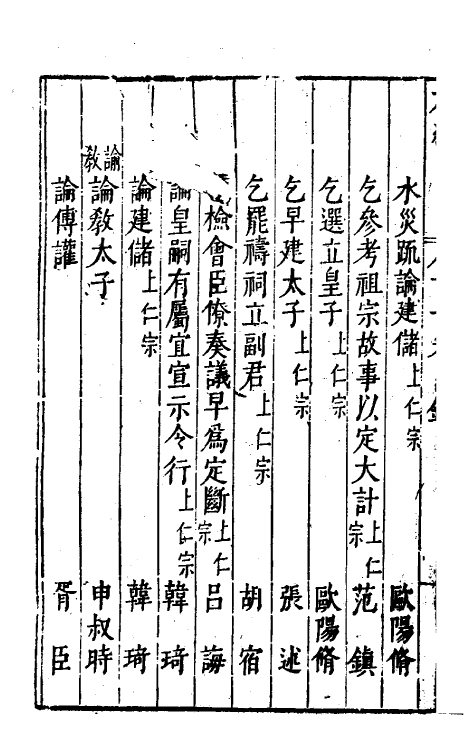 水災䟽論建儲上仁宗 歐陽脩
乞參考祖宗故事以定大計上仁宗 范鎮
乞選立皇子上仁宗 歐陽脩
乞早建太子上仁宗 張述
乞罷禱祠立副君上仁宗 胡宿
檢會臣僚奏議早爲定斷上仁宗 呂誨
論皇嗣有屬宜宣示令行上仁宗 韓琦
論建儲上仁宗 韓琦
諭教
論教太子 申叔時
論傅讙 胥臣